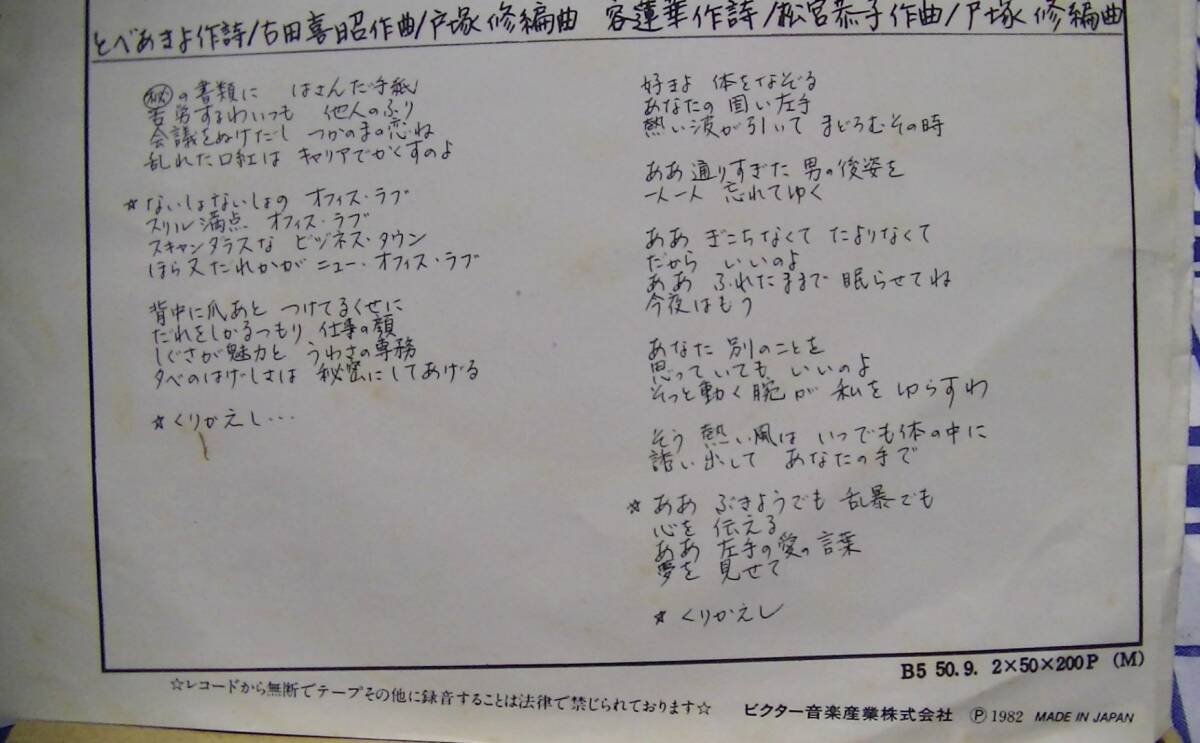 とべあきよ作詩/古田喜昭作曲/戸塚修編曲
㊙の書類に はさんだ手紙
苦労するわいつも 他人のふり
会議をぬけだし つかのまの恋ね
乱れた口紅は キャリアでかくすのよ
☆ないしょないしょの オフィス・ラブ
スリル満点 オフィス・ラブ
スキャンダラスな ビジネス・タウン
ほら又だれかが ニュー・オフィス・ラブ
背中に爪あと つけてるくせに
だれをしかるつもり 仕事の顔
しぐさが魅力と うわさの専務
夕べのはげしさは 秘密にしてあげる
☆くりかえし・・・
容蓮華作詩/松宮恭子作曲/戸塚 修編曲
好きよ 体をなぞる
あなたの 固い左手
熱い波が引いて まどろむその時
ああ 通りすぎた 男の後姿を
一人一人 忘れてゆく
ああ ぎこちなくて たよりなくて
だから いいのよ
ああ ふれたままで 眠らせてね
今夜はもう
あなた 別のことを
思っていても いいのよ
そっと動く腕が 私を ゆらすわ
そう 熱い風は いつでも体の中に
誘い出して あなたの手で
☆ああ ぶきようでも 乱暴でも
心を 伝える
ああ 左手の愛の言葉
夢を 見せて
☆くりかえし
B5 50.9. 2×50×200P (M)
☆レコードから無断でテープその他に録音することは法律で禁じられております☆
ビクター音楽産業株式会社 Ⓟ1982 MADE IN JAPAN